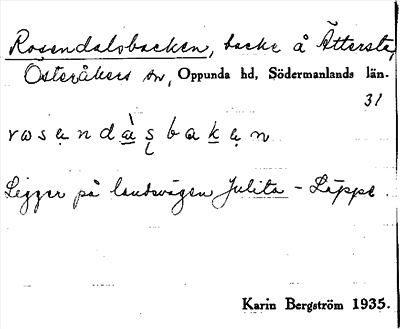 Rosendalsbacken, backe å Ättersta,
Österåkers sn, Oppunda hd, Södermanlands län.
31
rosẹndàsbakẹn
Ligger på landsvägen Julita - Läppe.
Karin Bergström 1935.